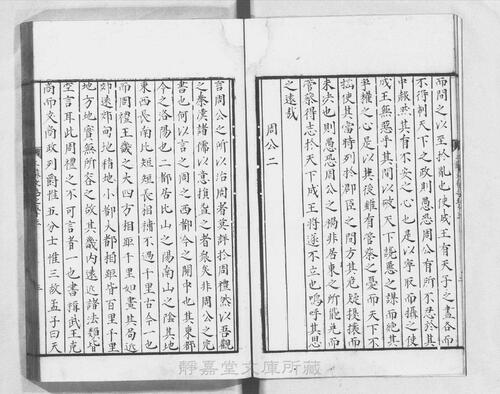 而間之以至於亂也使成王有天子之虛名而
不得制天下之政則愚恐周公有所不忍於其
中然其有不安之心也是以寧取而攝之使
成王無惡乎其間以破天下讒慝之謀而絕其
爭權之心是以其後雖有管蔡之憂而天下不
搖使其當時列於群臣之間方其危疑擾攘而
未決也則愚恐周公之禍非居東之所能免而
管蔡得志於天下成王將遂不立也嗚呼其思
之遠哉
周公二
言周公之所以治周者莫詳於周禮然以吾觀
之秦漢諸儒以意損益之者衆矣非周公之完
書也何以言之周之西都今之關中也其東都
今之洛陽也二都居北山之陽南山之陰其地
東西長南北短短長相補不過千里古今一也
而周禮王畿之大四方相距千里如畫其局近
郊遠郊甸地稍地小都大都相距皆百里千里
地方地實無所容之故其畿內遠近諸法類皆
空言耳此周禮之不可言者一也書稱武王克
商而反商政列爵惟五分土惟三故孟子曰天
靜嘉堂文庫所藏